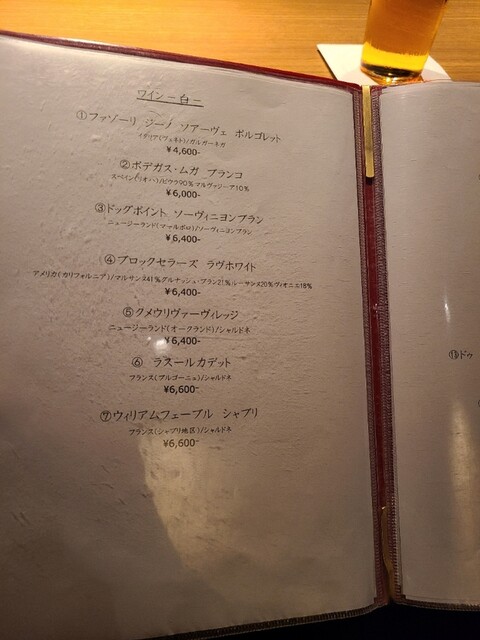 ワイン ー 白 ー
①ファゾーリ ジーノ ソアーヴェ ボルゴレット
イタリア(ヴェネト)/ガルガーネガ
¥4,600-
②ボデガス・ムガ ブランコ
スペイン(リオハ)/ビウラ90% マルヴァジーア10%
¥6,000-
③ドッグポイント ソーヴィニヨンブラン
ニュージーランド(マールボロ)/ソーヴィニヨンブラン
¥6,400-
④ブロックセラーズ ラヴホワイト
アメリカ(カリフォルニア)/マルサンヌ41%グルナッシュ・ブラン21%ルーサンヌ20%ヴィオニエ18%
¥6,400-
⑤クメウリヴァーヴィレッジ
ニュージーランド(オークランド)/シャルドネ
¥6,400-
⑥ ラスールカデット
フランス(ブルゴーニュ)/シャルドネ
¥6,600-
⑦ウィリアムフェーブル シャブリ
フランス(シャブリ地区)/シャルドネ
¥6,600-
⑪ドゥ